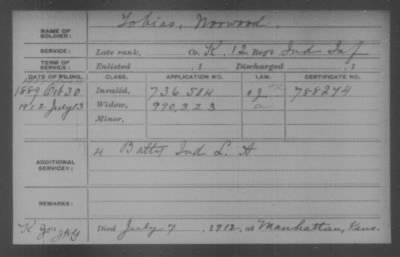 NAME OF SOLDIER: Tobias, Norwood.
SERVICE: Late rank, Co. K, 12 Reg't Ind Inf
TERM OF SERVICE: Enlisted , 1 Discharged , 1
DATE OF FILING. CLASS. APPLICATION NO. LAW. CERTIFICATE NO.
1889 Oct 30 Invalid, 736.504 788274
1912 July 23 Widow, 990.323
Minor,
ADDITIONAL SERVICES: 4 Batty Ind L. A
REMARKS:
Died July 7, 1912, at Manhattan, Kans.